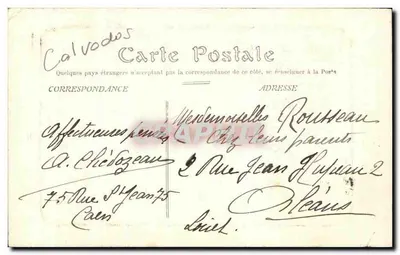 Calvados
Carte Postale
Quelques pays étrangers n'acceptant pas la correspondance de ce côté, se renseigner à la Poste
CORRESPONDANCE
ADRESSE
Affectueuses pensées
A. Chédozeau
75 Rue St Jean 75
Caen
Mesdemoiselles Rousseau
Chez leurs parents
2 Rue Jean Hupeau 2
Orléans
Loiret